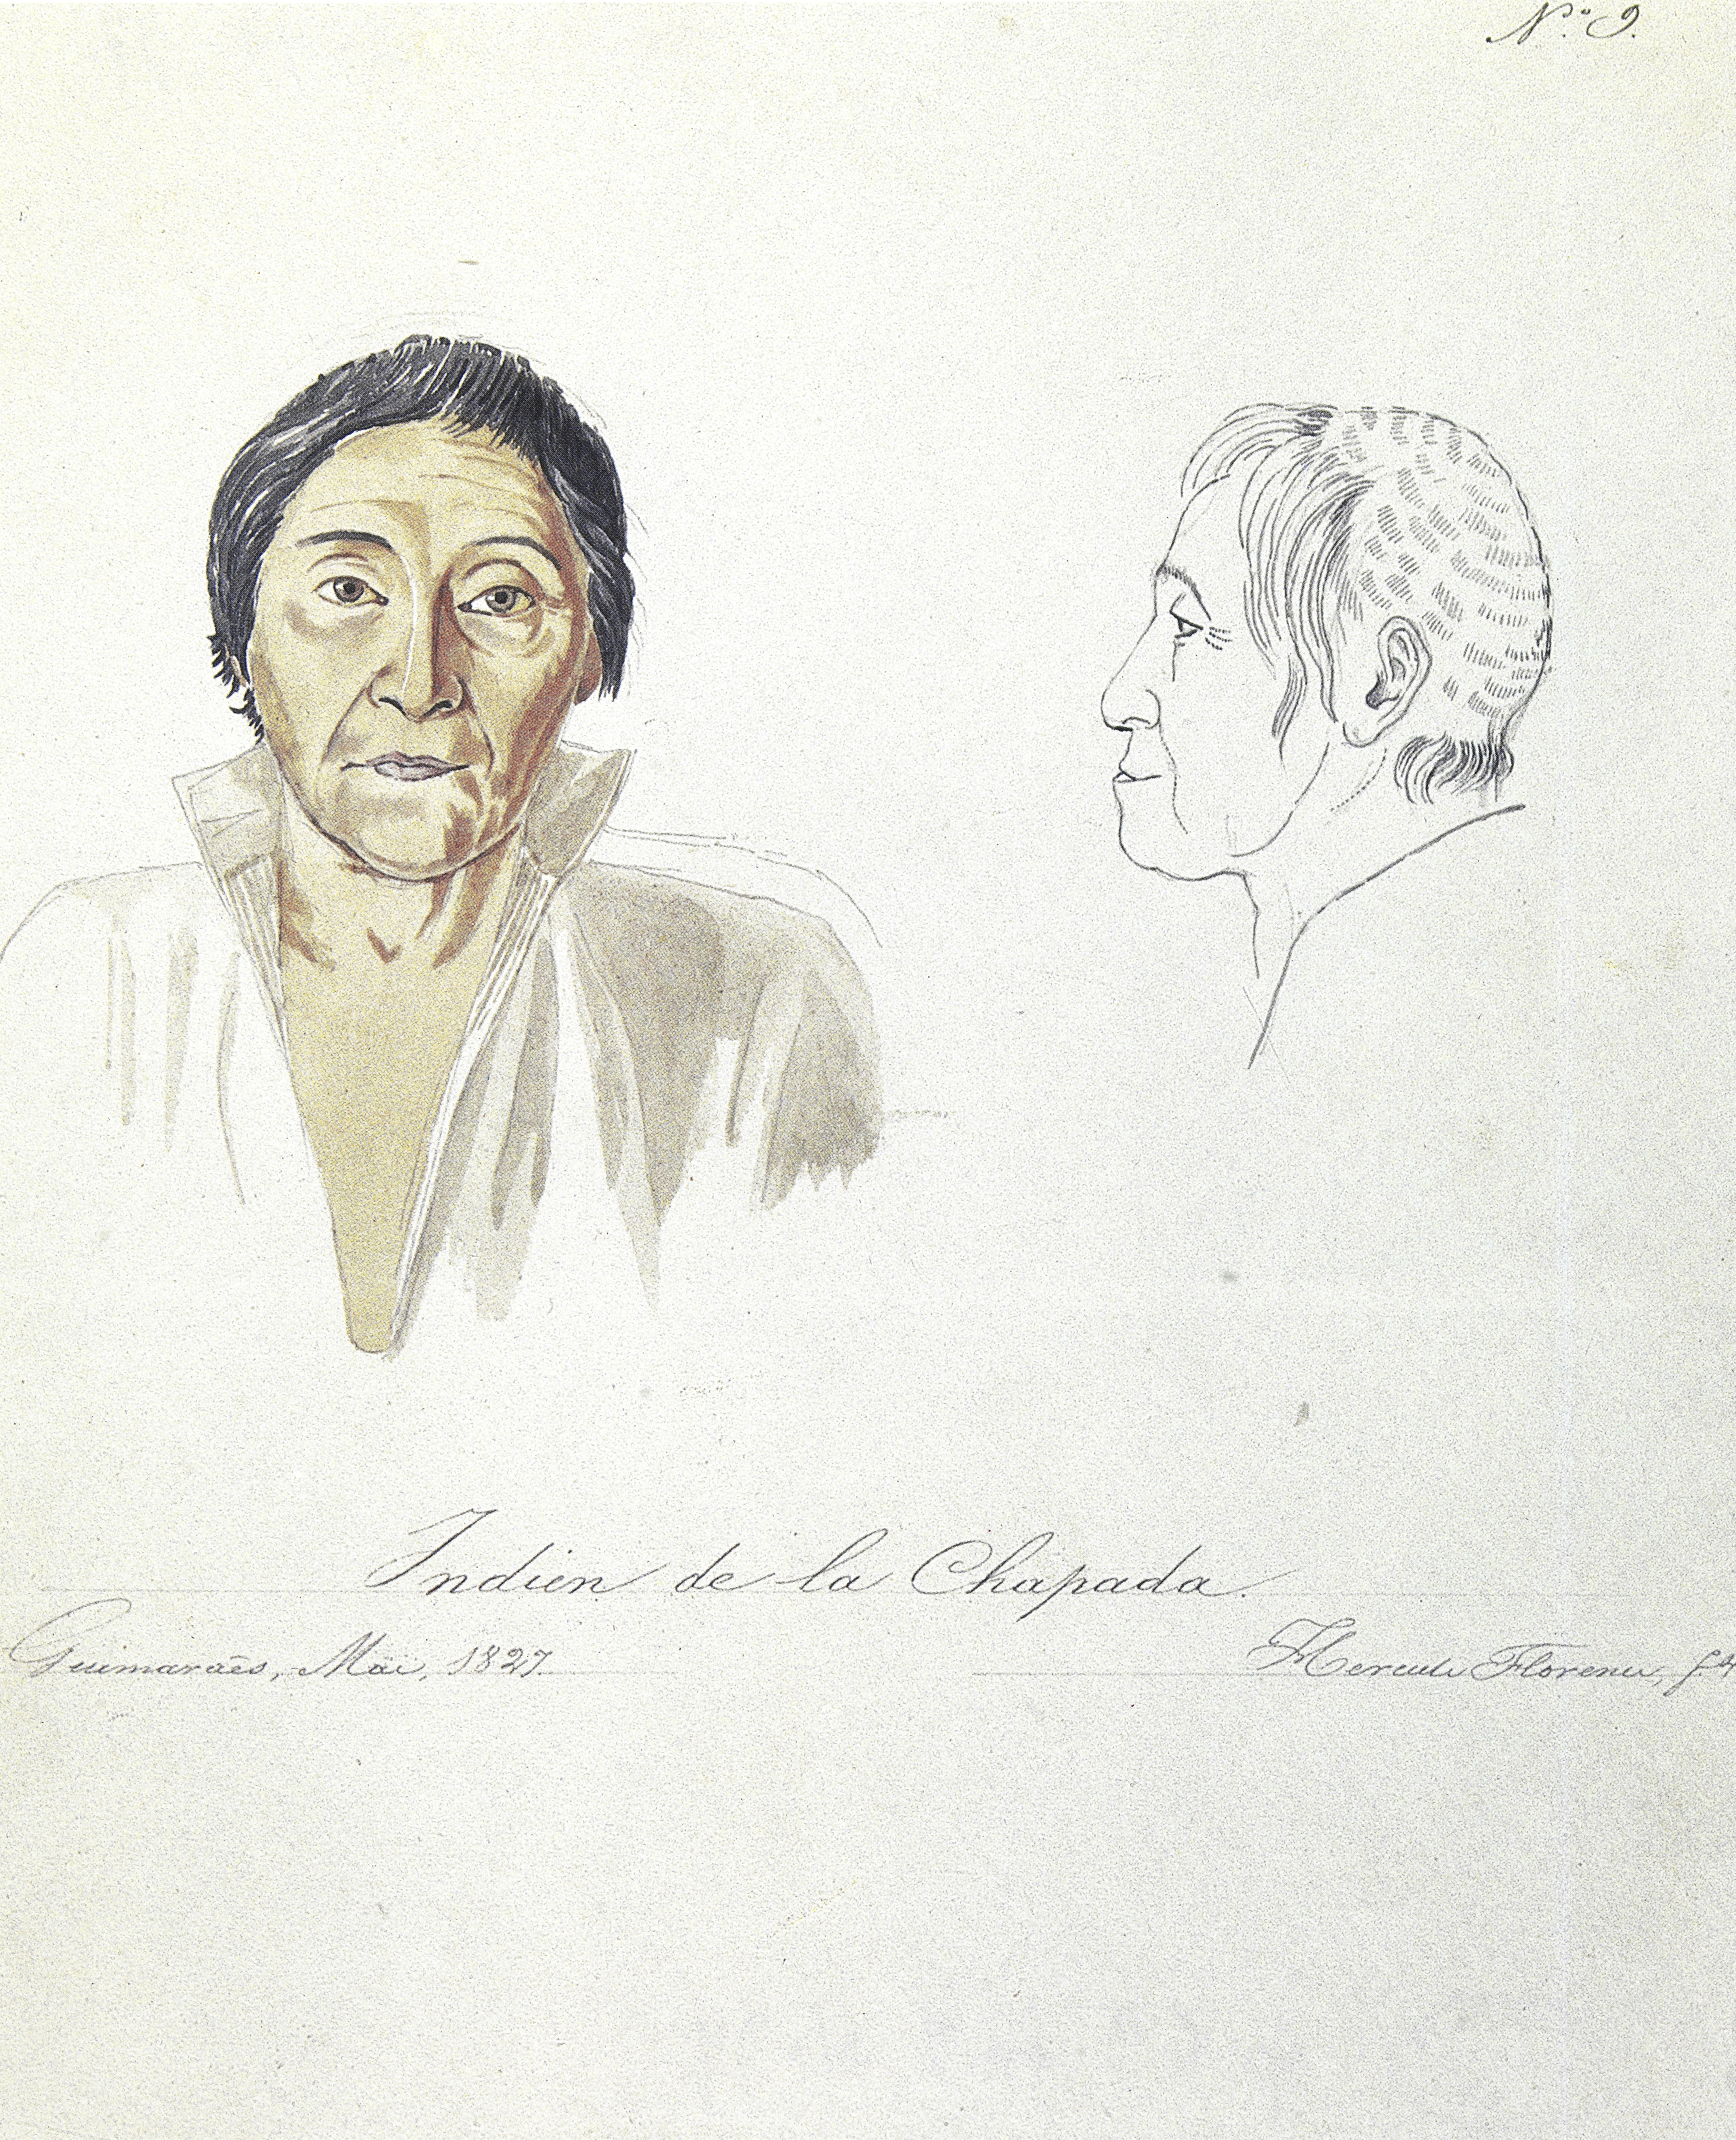 N.º 9.
Indien de la Chapada.
Guimaraẽs, Mai, 1827.
Hercule Florence, f.